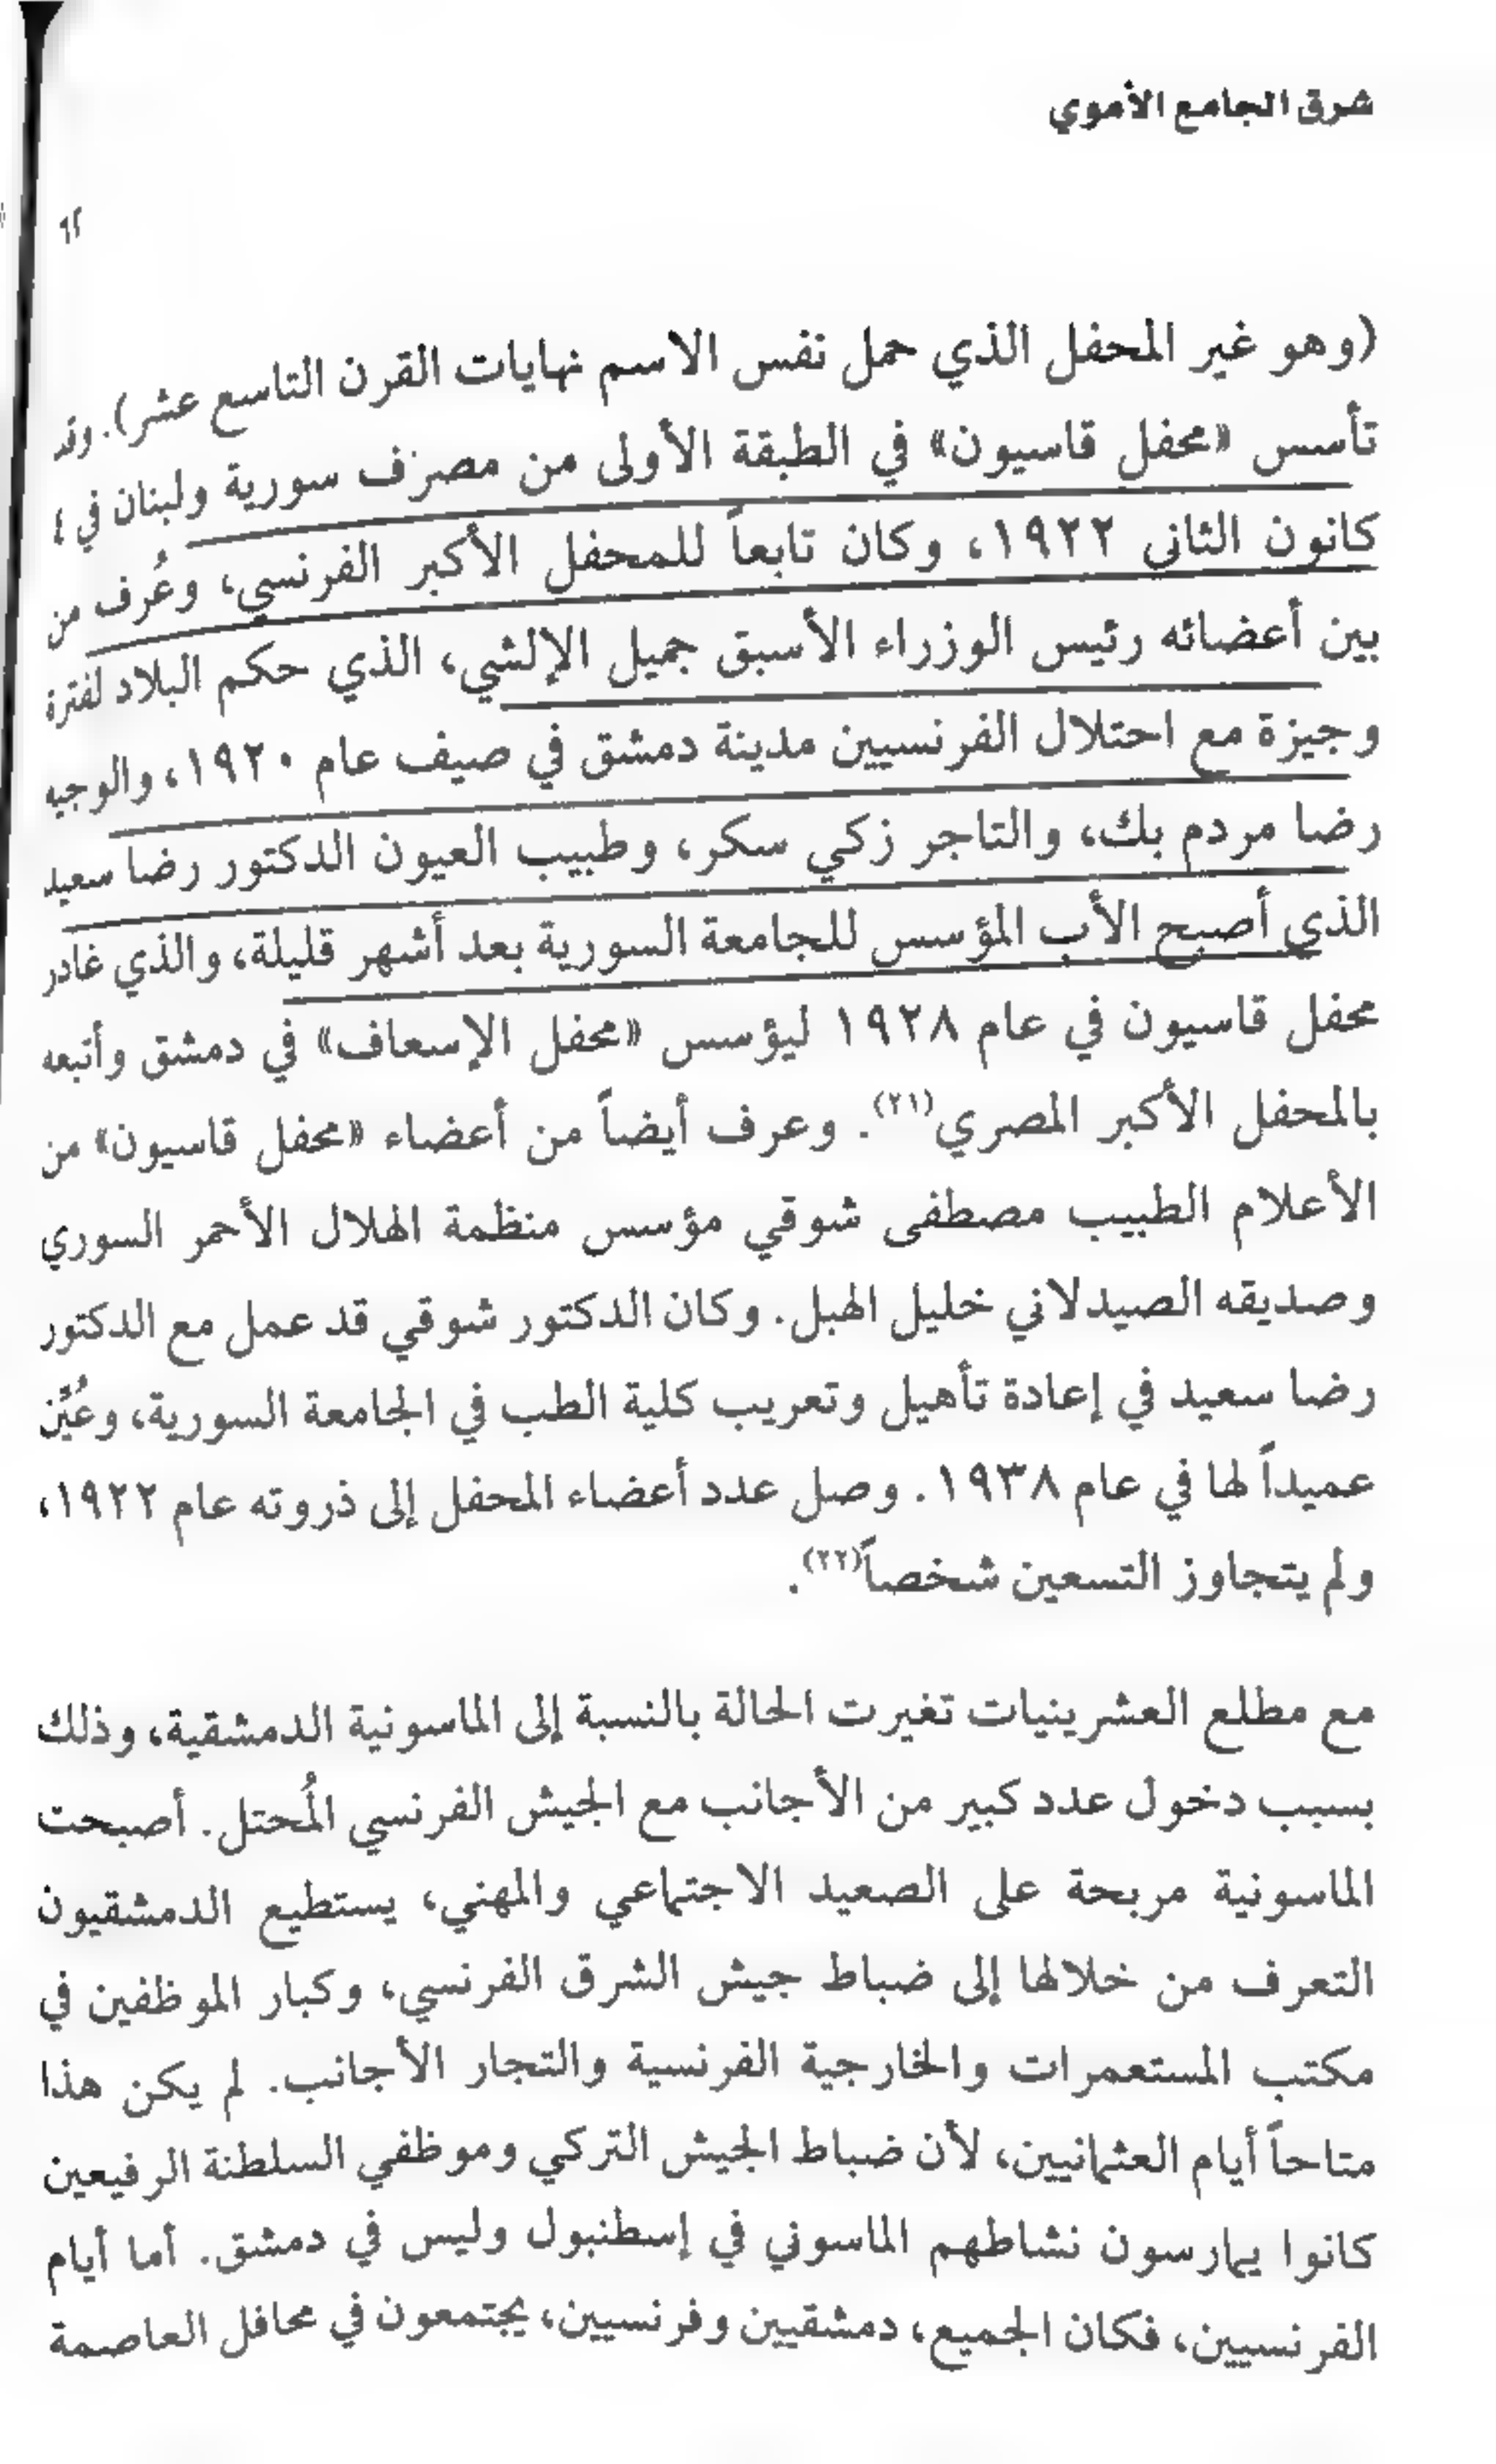 شرق الجامع الأموي
٦٢
(وهو غير المحفل الذي حمل نفس الاسم نهايات القرن التاسع عشر). وقد
تأسس «محفل قاسيون» في الطبقة الأولى من مصرف سورية ولبنان في ٤
كانون الثاني ١٩٢٢، وكان تابعاً للمحفل الأكبر الفرنسي، وعُرف من
بين أعضائه رئيس الوزراء الأسبق جميل الإلشي، الذي حكم البلاد لفترة
وجيزة مع احتلال الفرنسيين مدينة دمشق في صيف عام ١٩٢٠، والوجيه
رضا مردم بك، والتاجر زكي سكر، وطبيب العيون الدكتور رضا سعيد
الذي أصبح الأب المؤسس للجامعة السورية بعد أشهر قليلة، والذي غادر
محفل قاسيون في عام ١٩٢٨ ليؤسس «محفل الإسعاف» في دمشق وأتبعه
بالمحفل الأكبر المصري(٢١). وعرف أيضاً من أعضاء «محفل قاسيون» من
الأعلام الطبيب مصطفى شوقي مؤسس منظمة الهلال الأحمر السوري
وصديقه الصيدلاني خليل الهبل. وكان الدكتور شوقي قد عمل مع الدكتور
رضا سعيد في إعادة تأهيل وتعريب كلية الطب في الجامعة السورية، وعُيّن
عميداً لها في عام ١٩٣٨. وصل عدد أعضاء المحفل إلى ذروته عام ١٩٢٢،
ولم يتجاوز التسعين شخصاً(٢٢).
مع مطلع العشرينيات تغيرت الحالة بالنسبة إلى الماسونية الدمشقية، وذلك
بسبب دخول عدد كبير من الأجانب مع الجيش الفرنسي المُحتل. أصبحت
الماسونية مربحة على الصعيد الاجتماعي والمهني، يستطيع الدمشقيون
التعرف من خلالها إلى ضباط جيش الشرق الفرنسي، وكبار الموظفين في
مكتب المستعمرات والخارجية الفرنسية والتجار الأجانب. لم يكن هذا
متاحاً أيام العثمانيين، لأن ضباط الجيش التركي وموظفي السلطنة الرفيعين
كانوا يمارسون نشاطهم الماسوني في إسطنبول وليس في دمشق. أما أيام
الفرنسيين، فكان الجميع، دمشقيين وفرنسيين، يجتمعون في محافل العاصمة